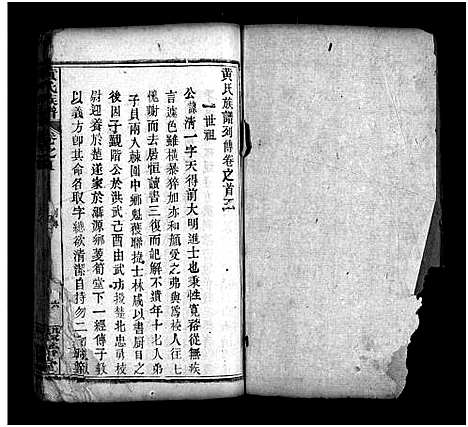 黄氏族譜列傳卷之首二
一世祖
公諱清一字天得前大明進士也秉性寬裕從無疾
言遽色雖橫暴猝加亦和顏受之弗與爲校人往亡
愧謝而去居恒讀書三復而記解不遺年十七入弟
子員兩入棘圍中鄉魁獲聯捷士林咸以書厨目之
後因子覲階公於洪武己酉由武功授楚北忠勇校
尉迎養於楚遂家於瀏源鄉菱荀堂下一經傳子教
以義方即其命名取字總欲清潔自持勿二
黄氏族譜